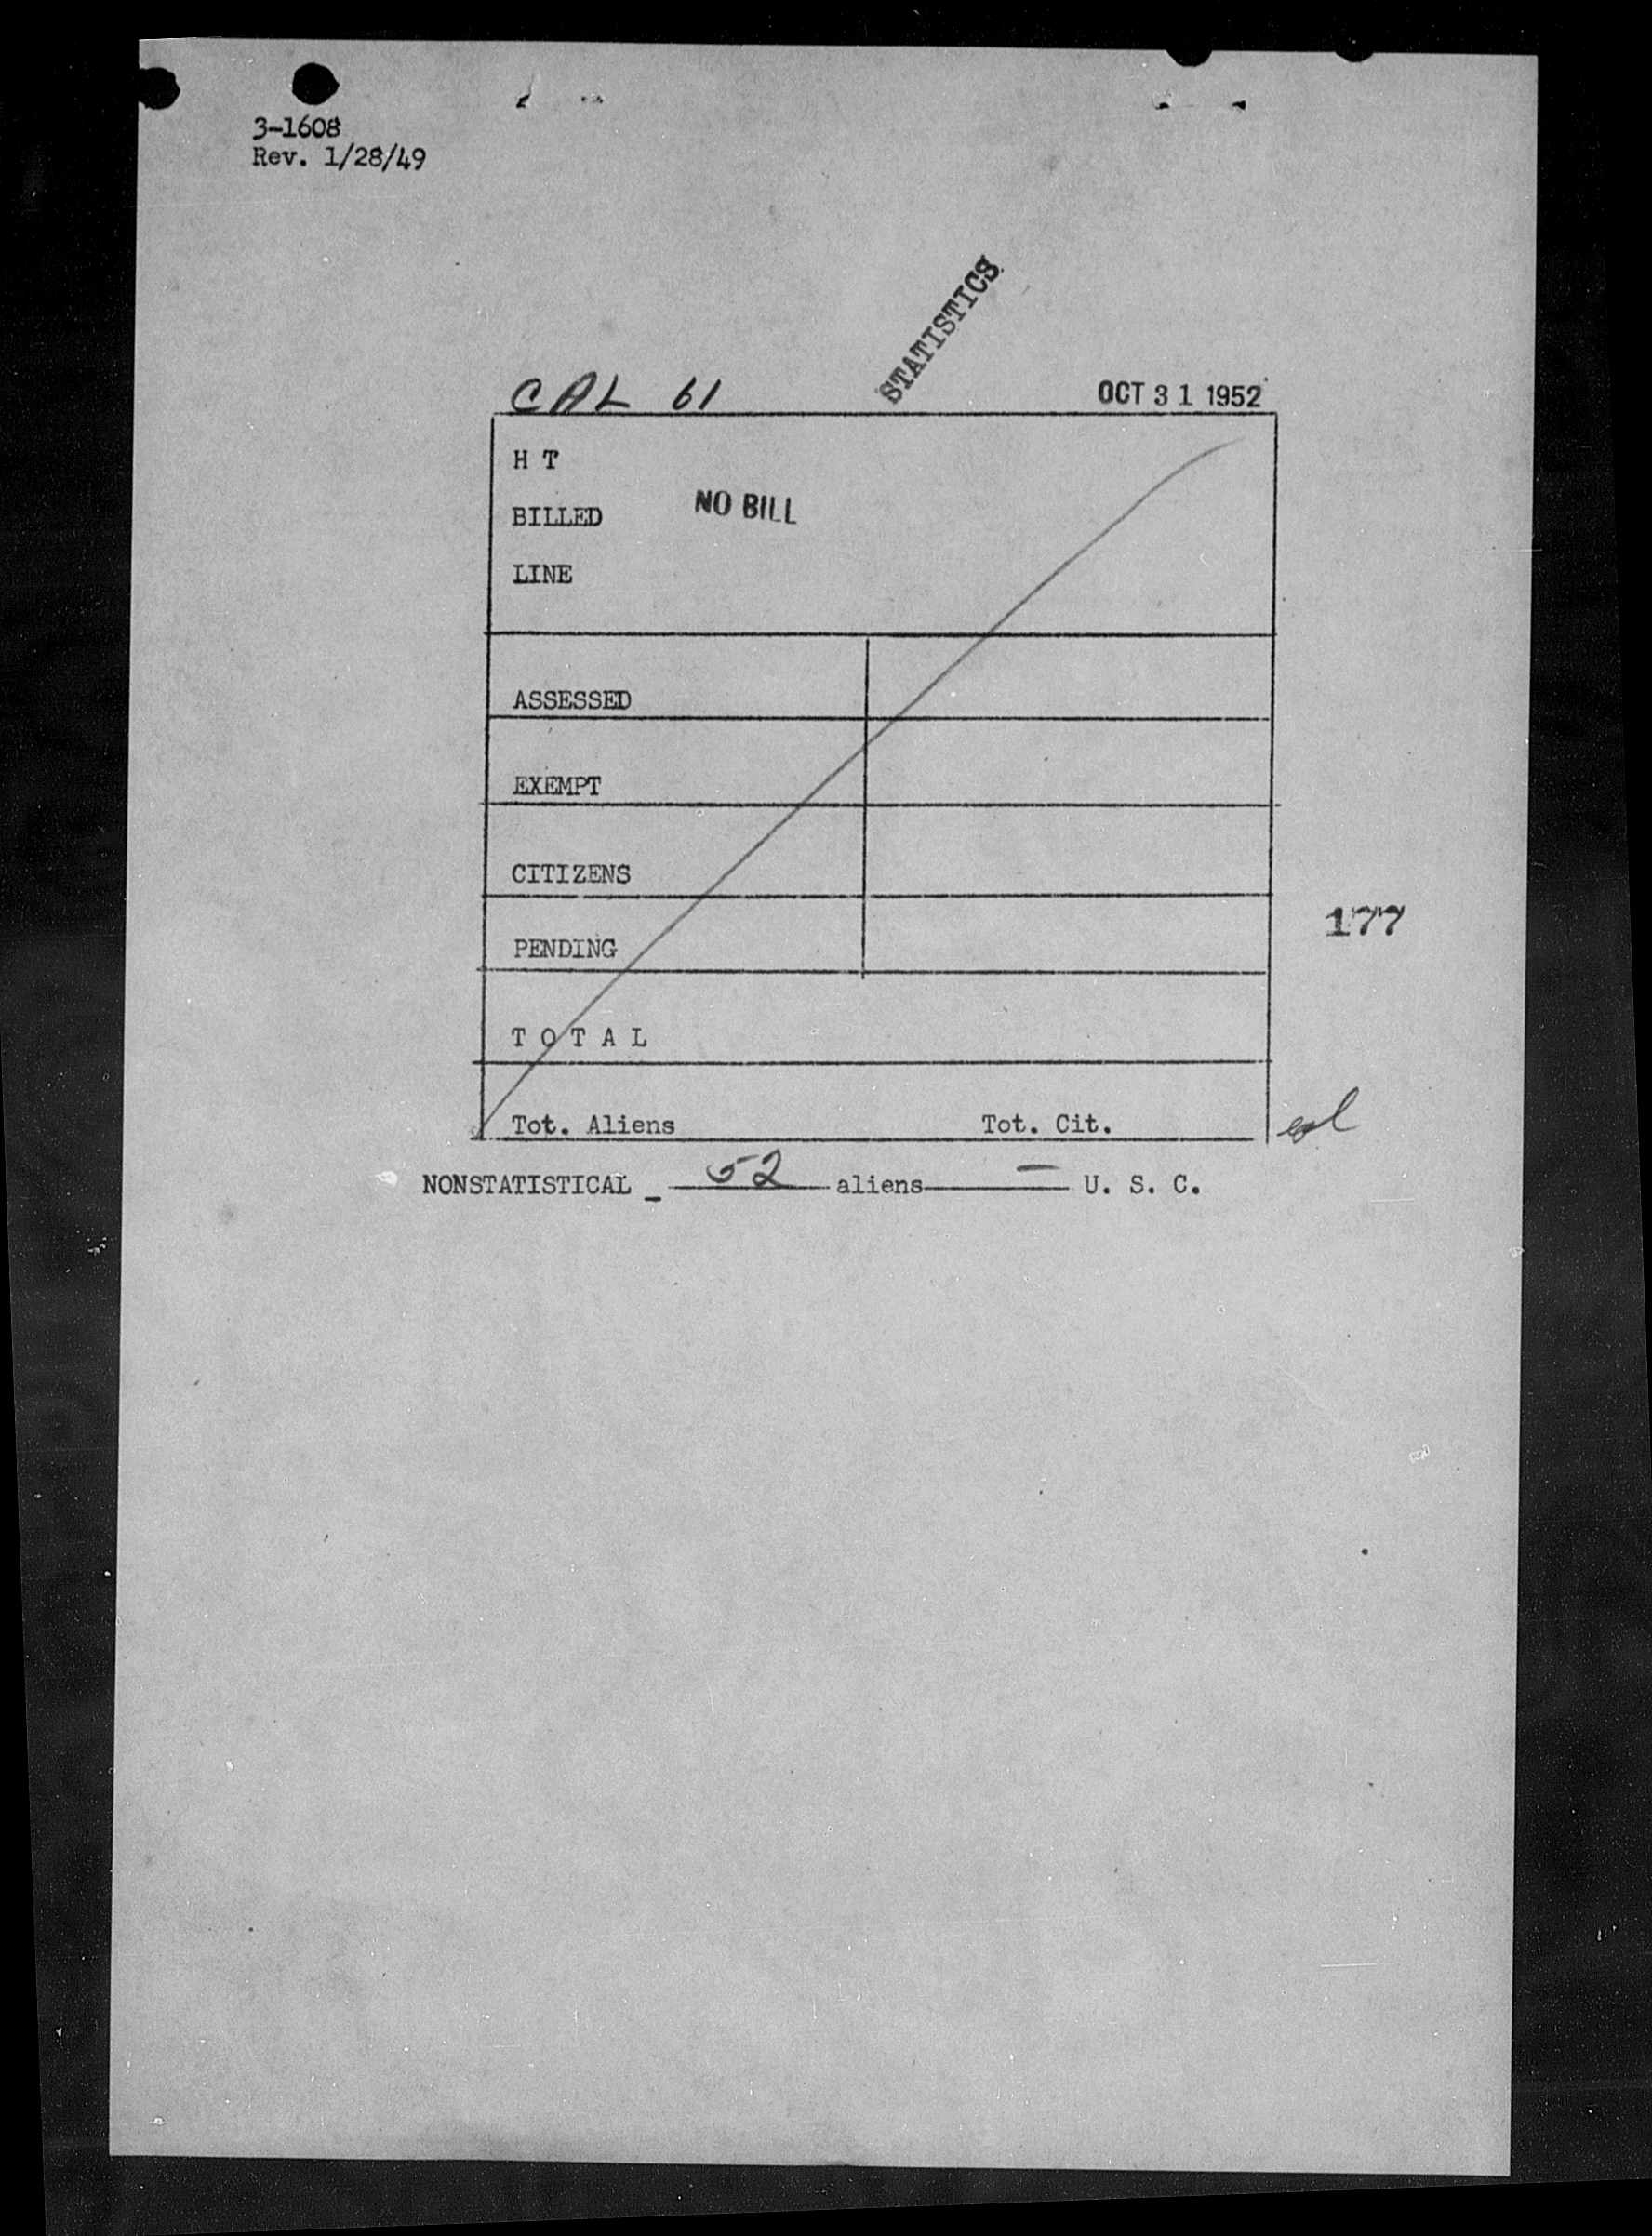 3-1608
Rev. 1/28/49
STATISTICS
CAL 61 OCT 31 1952
H T
BILLED NO BILL
LINE
ASSESSED
EXEMPT
CITIZENS
177
PENDING
T O T A L
Tot. Aliens Tot. Cit.
NONSTATISTICAL - 52 aliens — U. S. C.